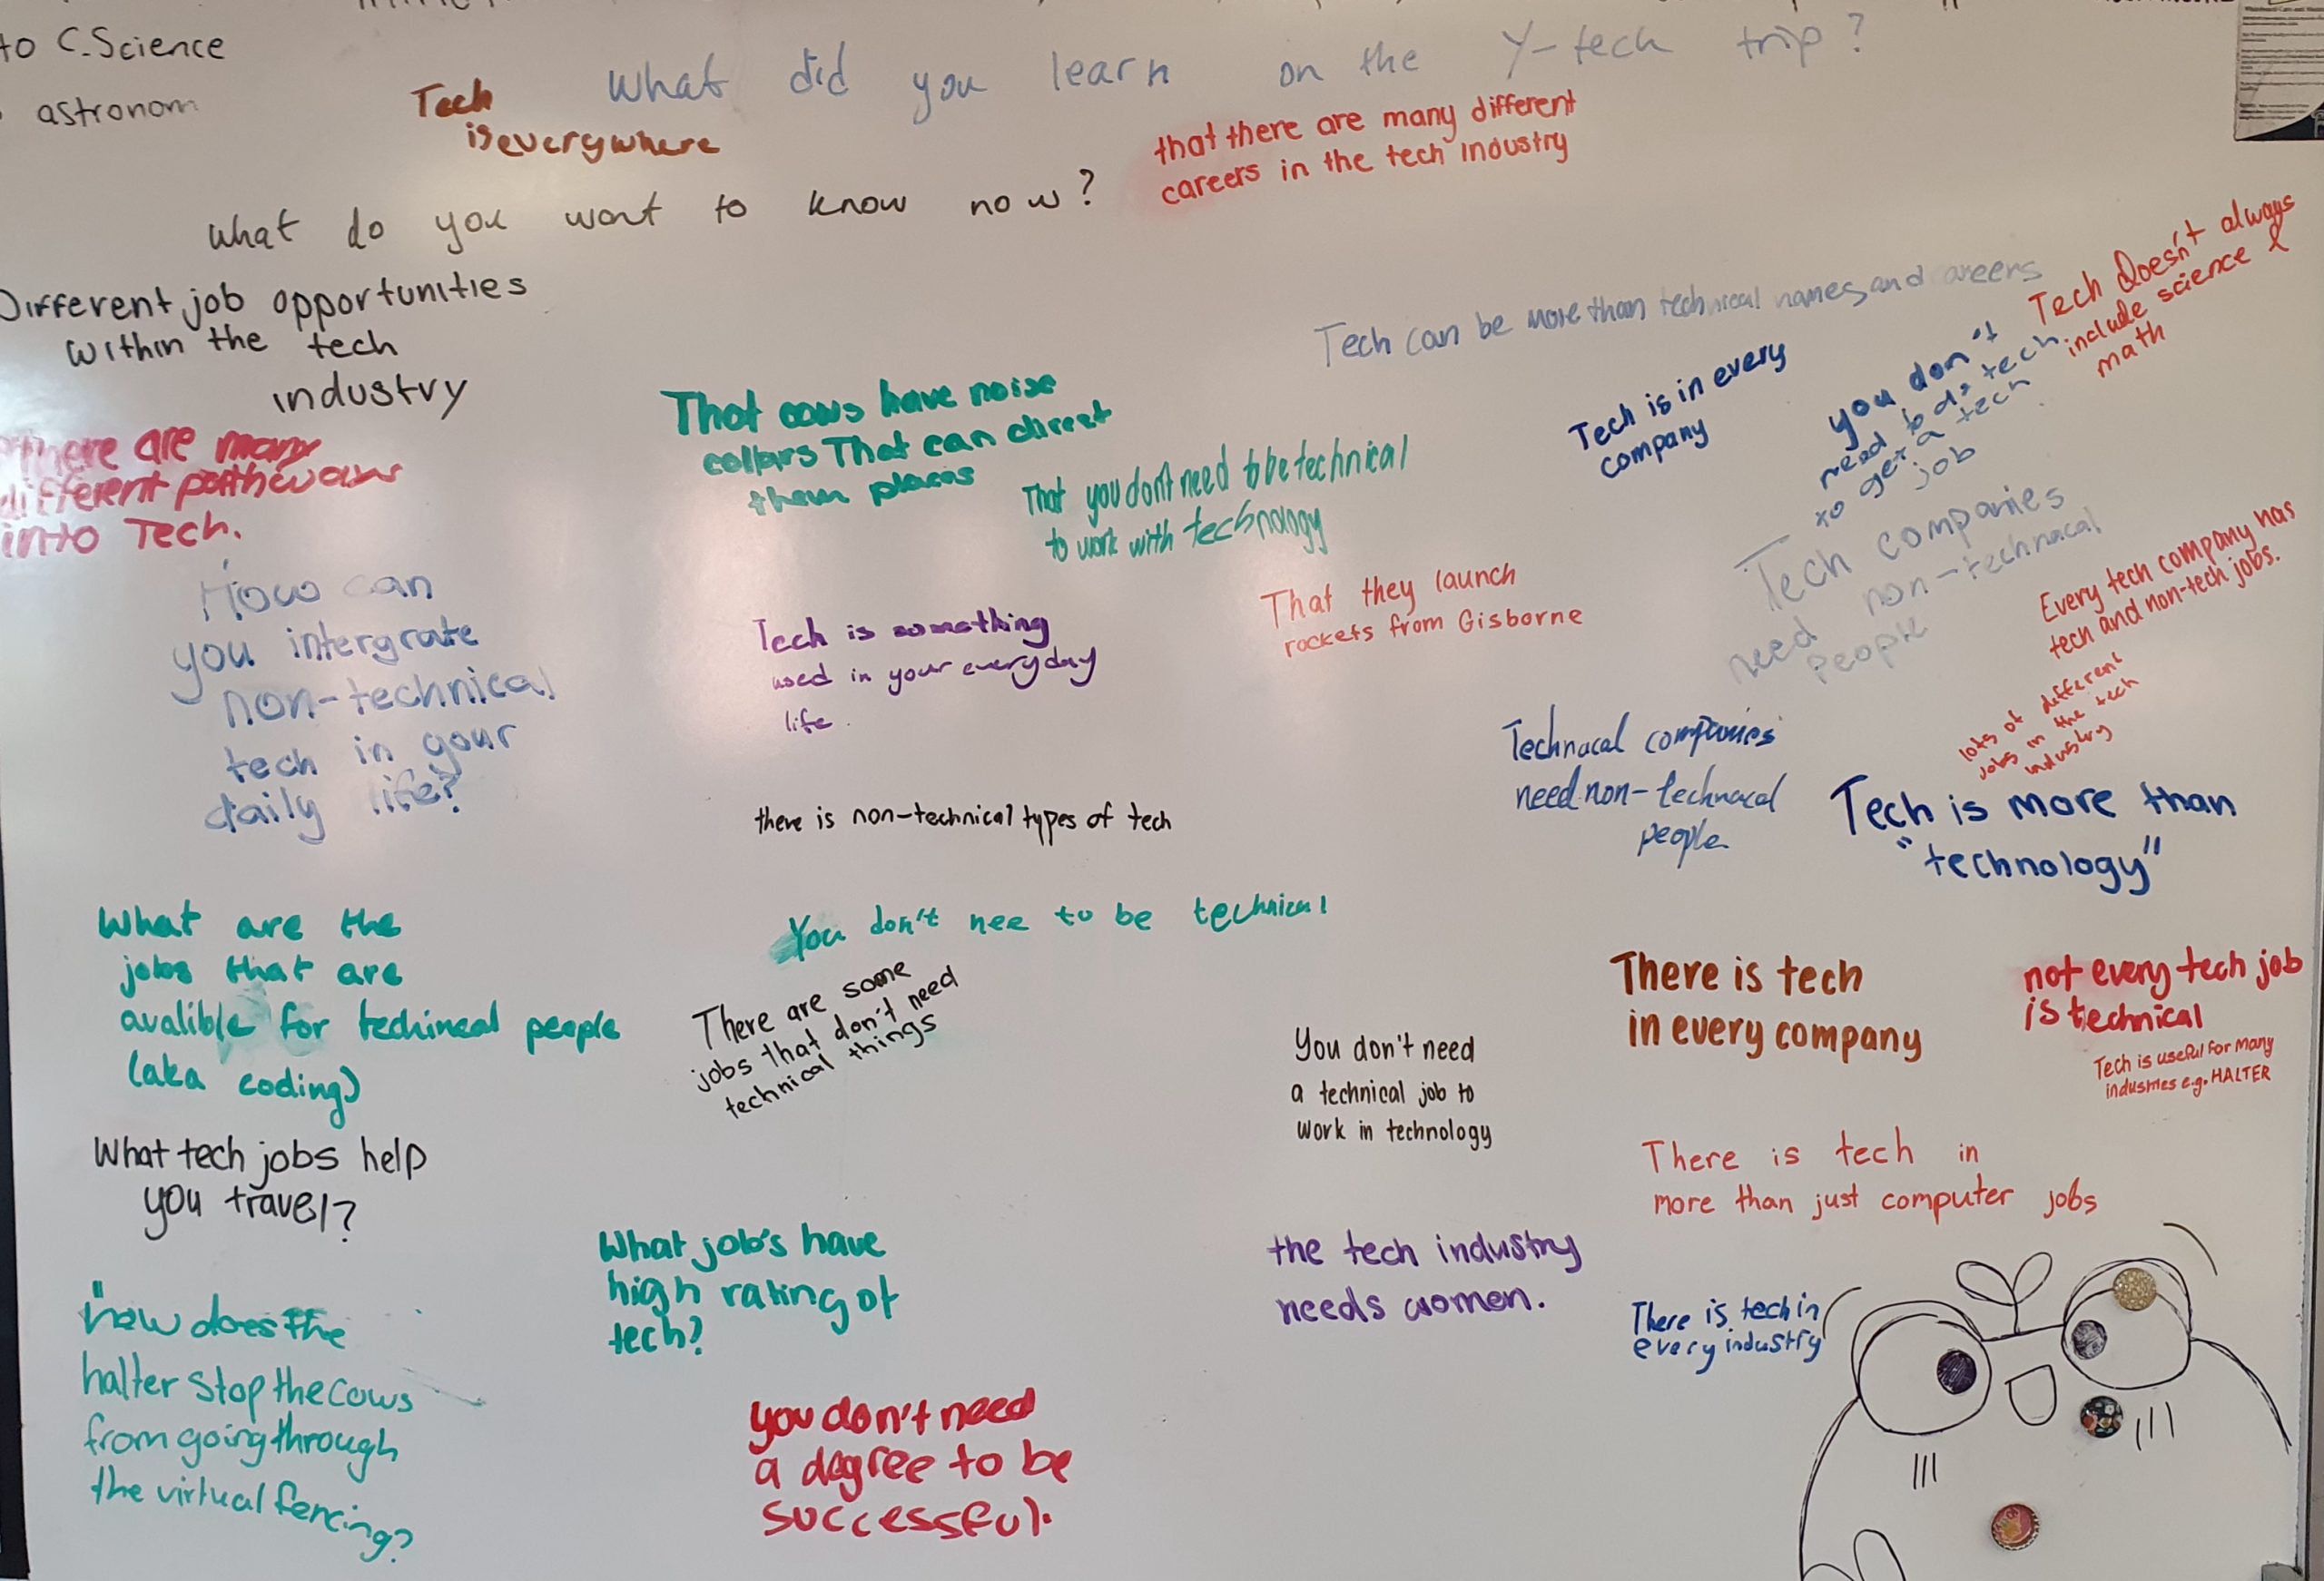 to C.Science
astronom
What did you learn on the Y-tech trip?
Tech
is everywhere
that there are many different
careers in the tech industry
What do you wont to know now?
Different job opportunities
within the tech
industry
There are many
different pathways
into Tech.
How can
you intergrate
non-technical
tech in your
daily life?
What are the
jobs that are
avalible for techineal people
(aka coding)
What tech jobs help
you travel?
how does the
halter stop the cows
from going through
the virtual fencing?
That cows have noise
collars That can direct
them places
That you dont need to be technical
to work with technology
Tech is something
used in your everyday
life.
there is non-technical types of tech
You don't nee to be technical
There are some
jobs that don't need
technical things
What job's have
high rating of
tech?
you don't need
a degree to be
successful.
Tech can be more than technical names and careers
Tech is in every
company
you don't
need to do tech
to get a tech
job
Tech Doesn't always
include science &
math
That they launch
rockets from Gisborne
Tech companies
need non-technacal
people
Every tech company has
tech and non-tech jobs.
lots of different
jobs in the tech
industry
Technacal companies
need non-technacal
people
Tech is more than
"technology"
There is tech
in every company
not every tech job
is technical
Tech is useful for many
industries e.g. HALTER
You don't need
a technical job to
work in technology
There is tech in
more than just computer jobs
the tech industry
needs women.
There is tech in
every industry